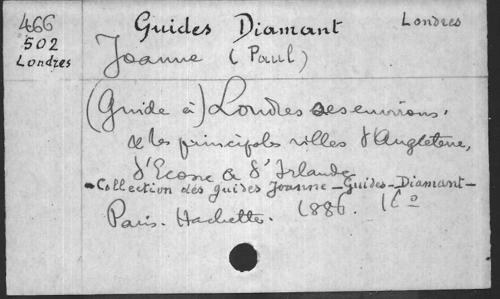 466
502
Londres
Guides Diamant
Londres
Joanne (Paul)
(Guide à) Londres ses environs,
& les principales villes d'Angleterre,
d'Ecosse & d'Irlande
- Collection des guides Joanne - Guides - Diamant -
Paris. Hachette. 1886. 16º